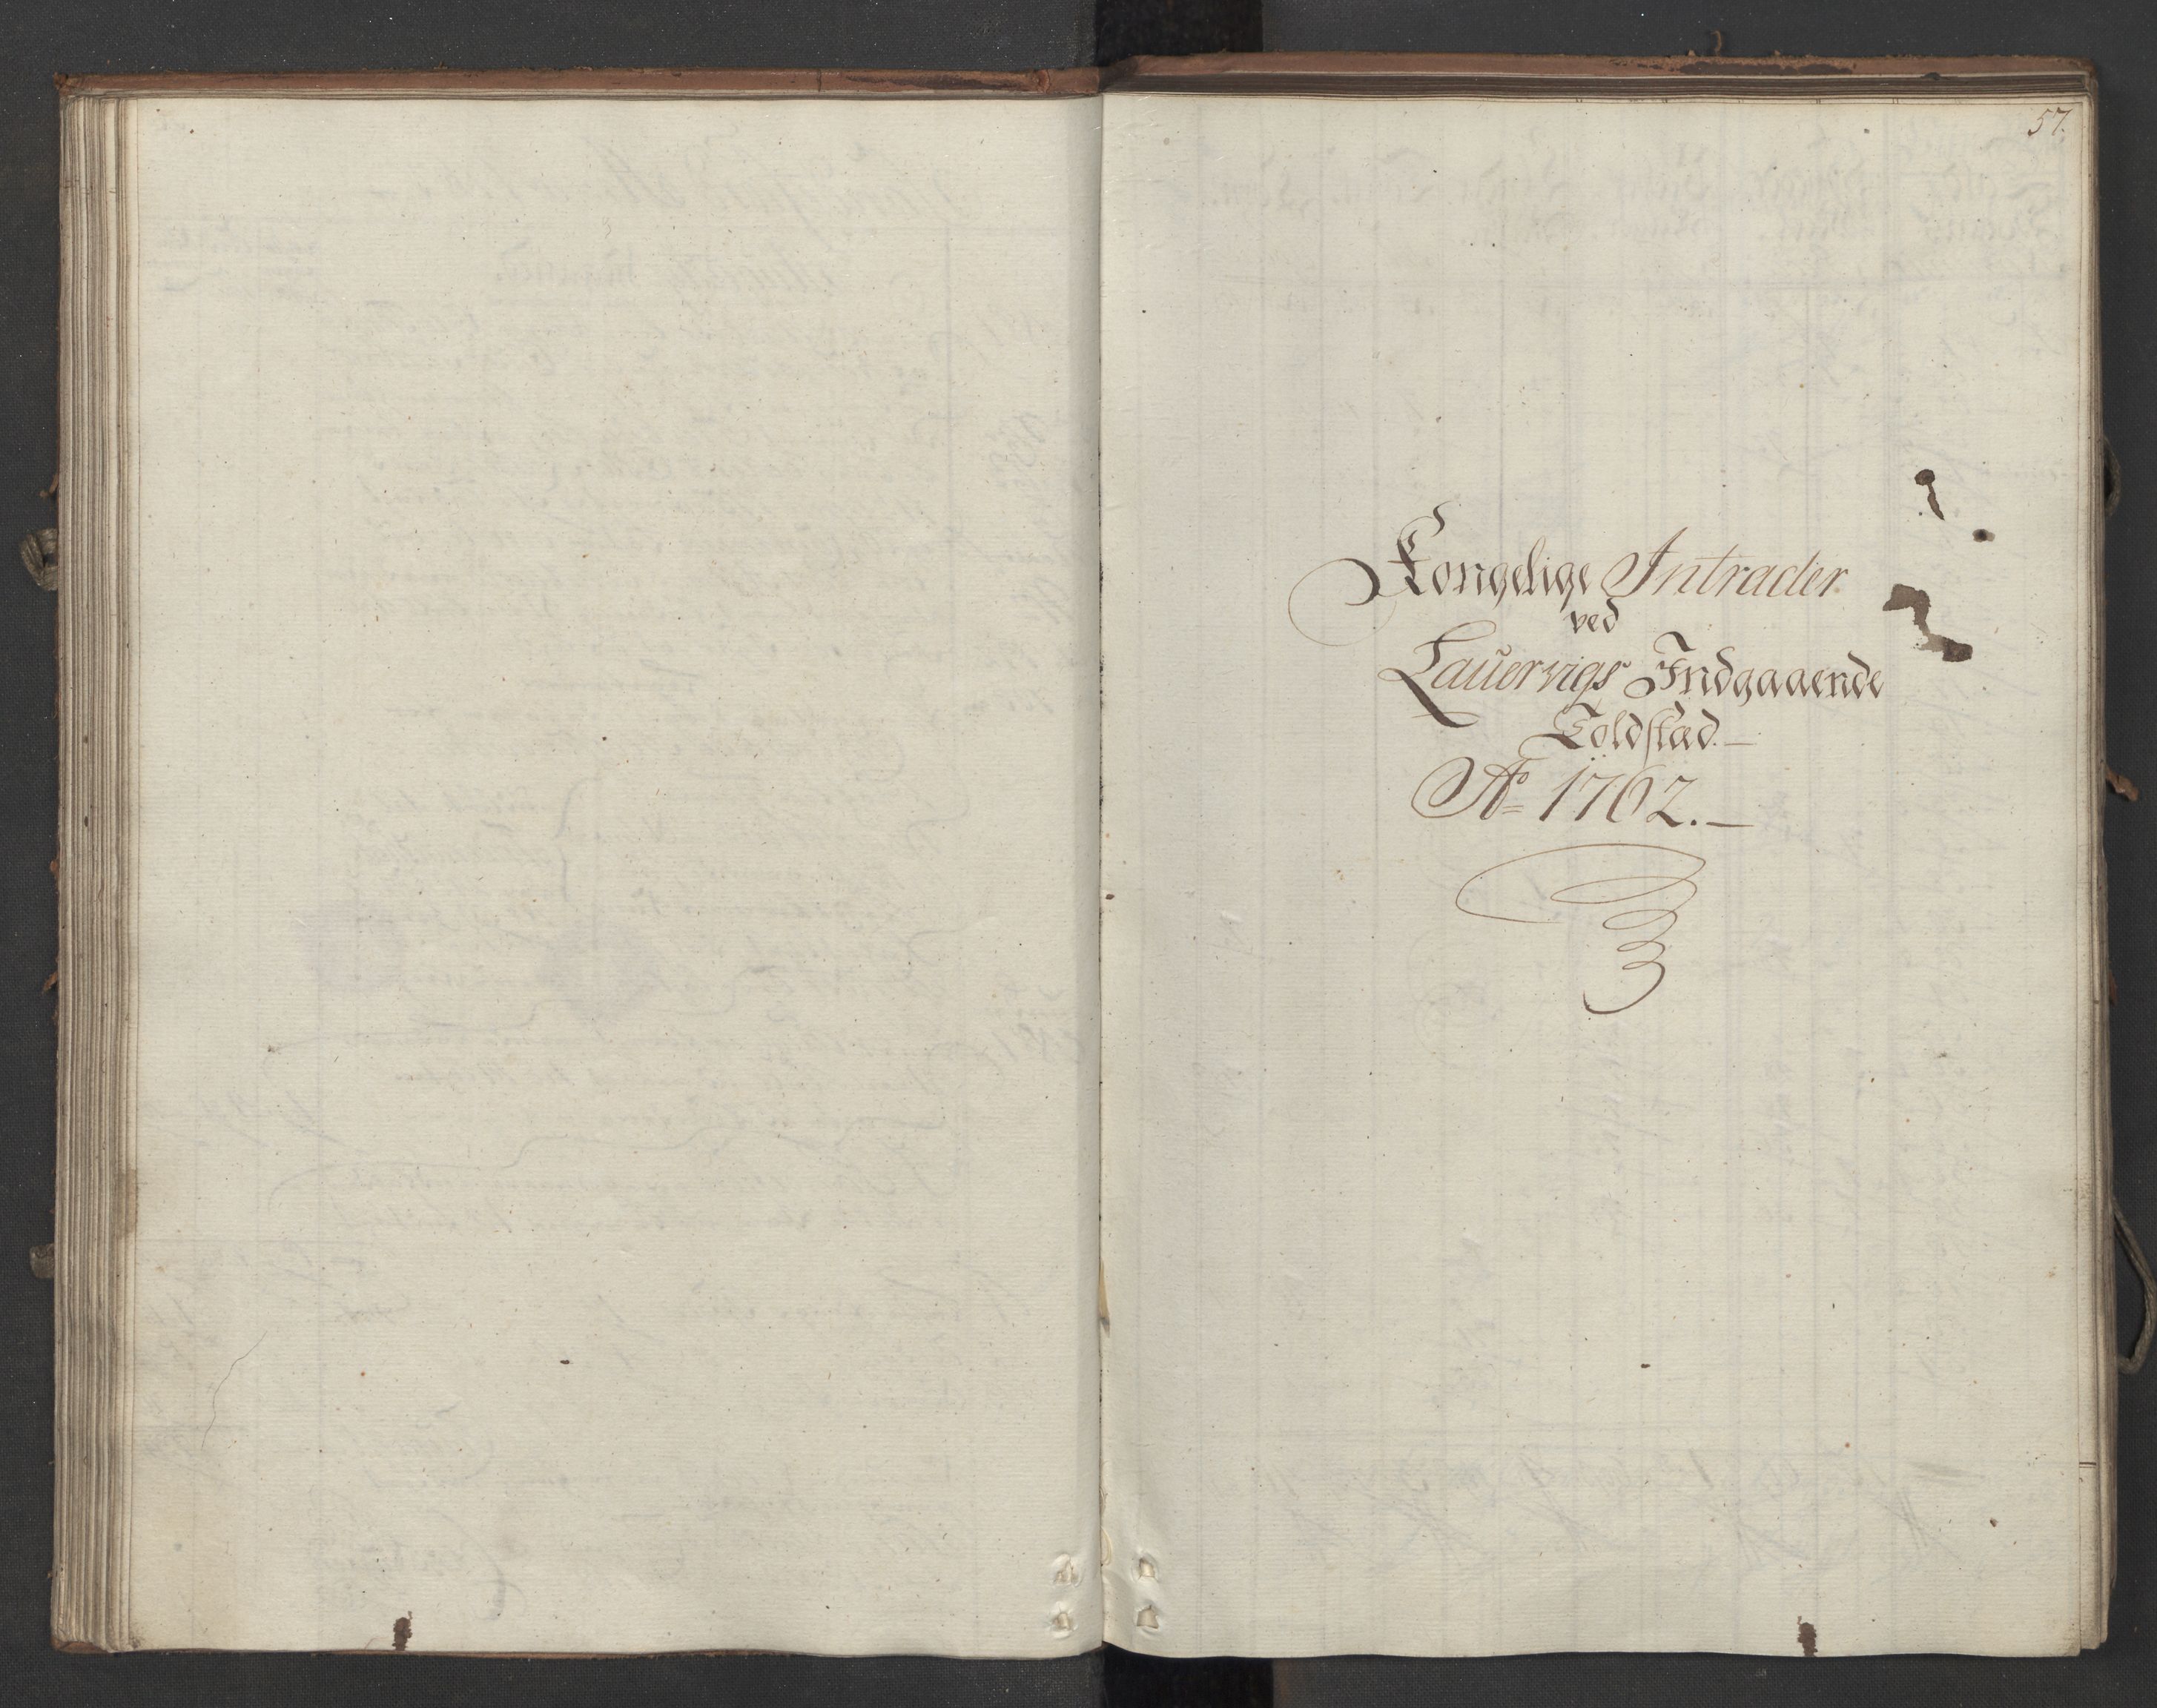 57.
Kongelige Intrader
ved
Lauervigs Indgaaende
Toldstæd. —
Ao 1762. —